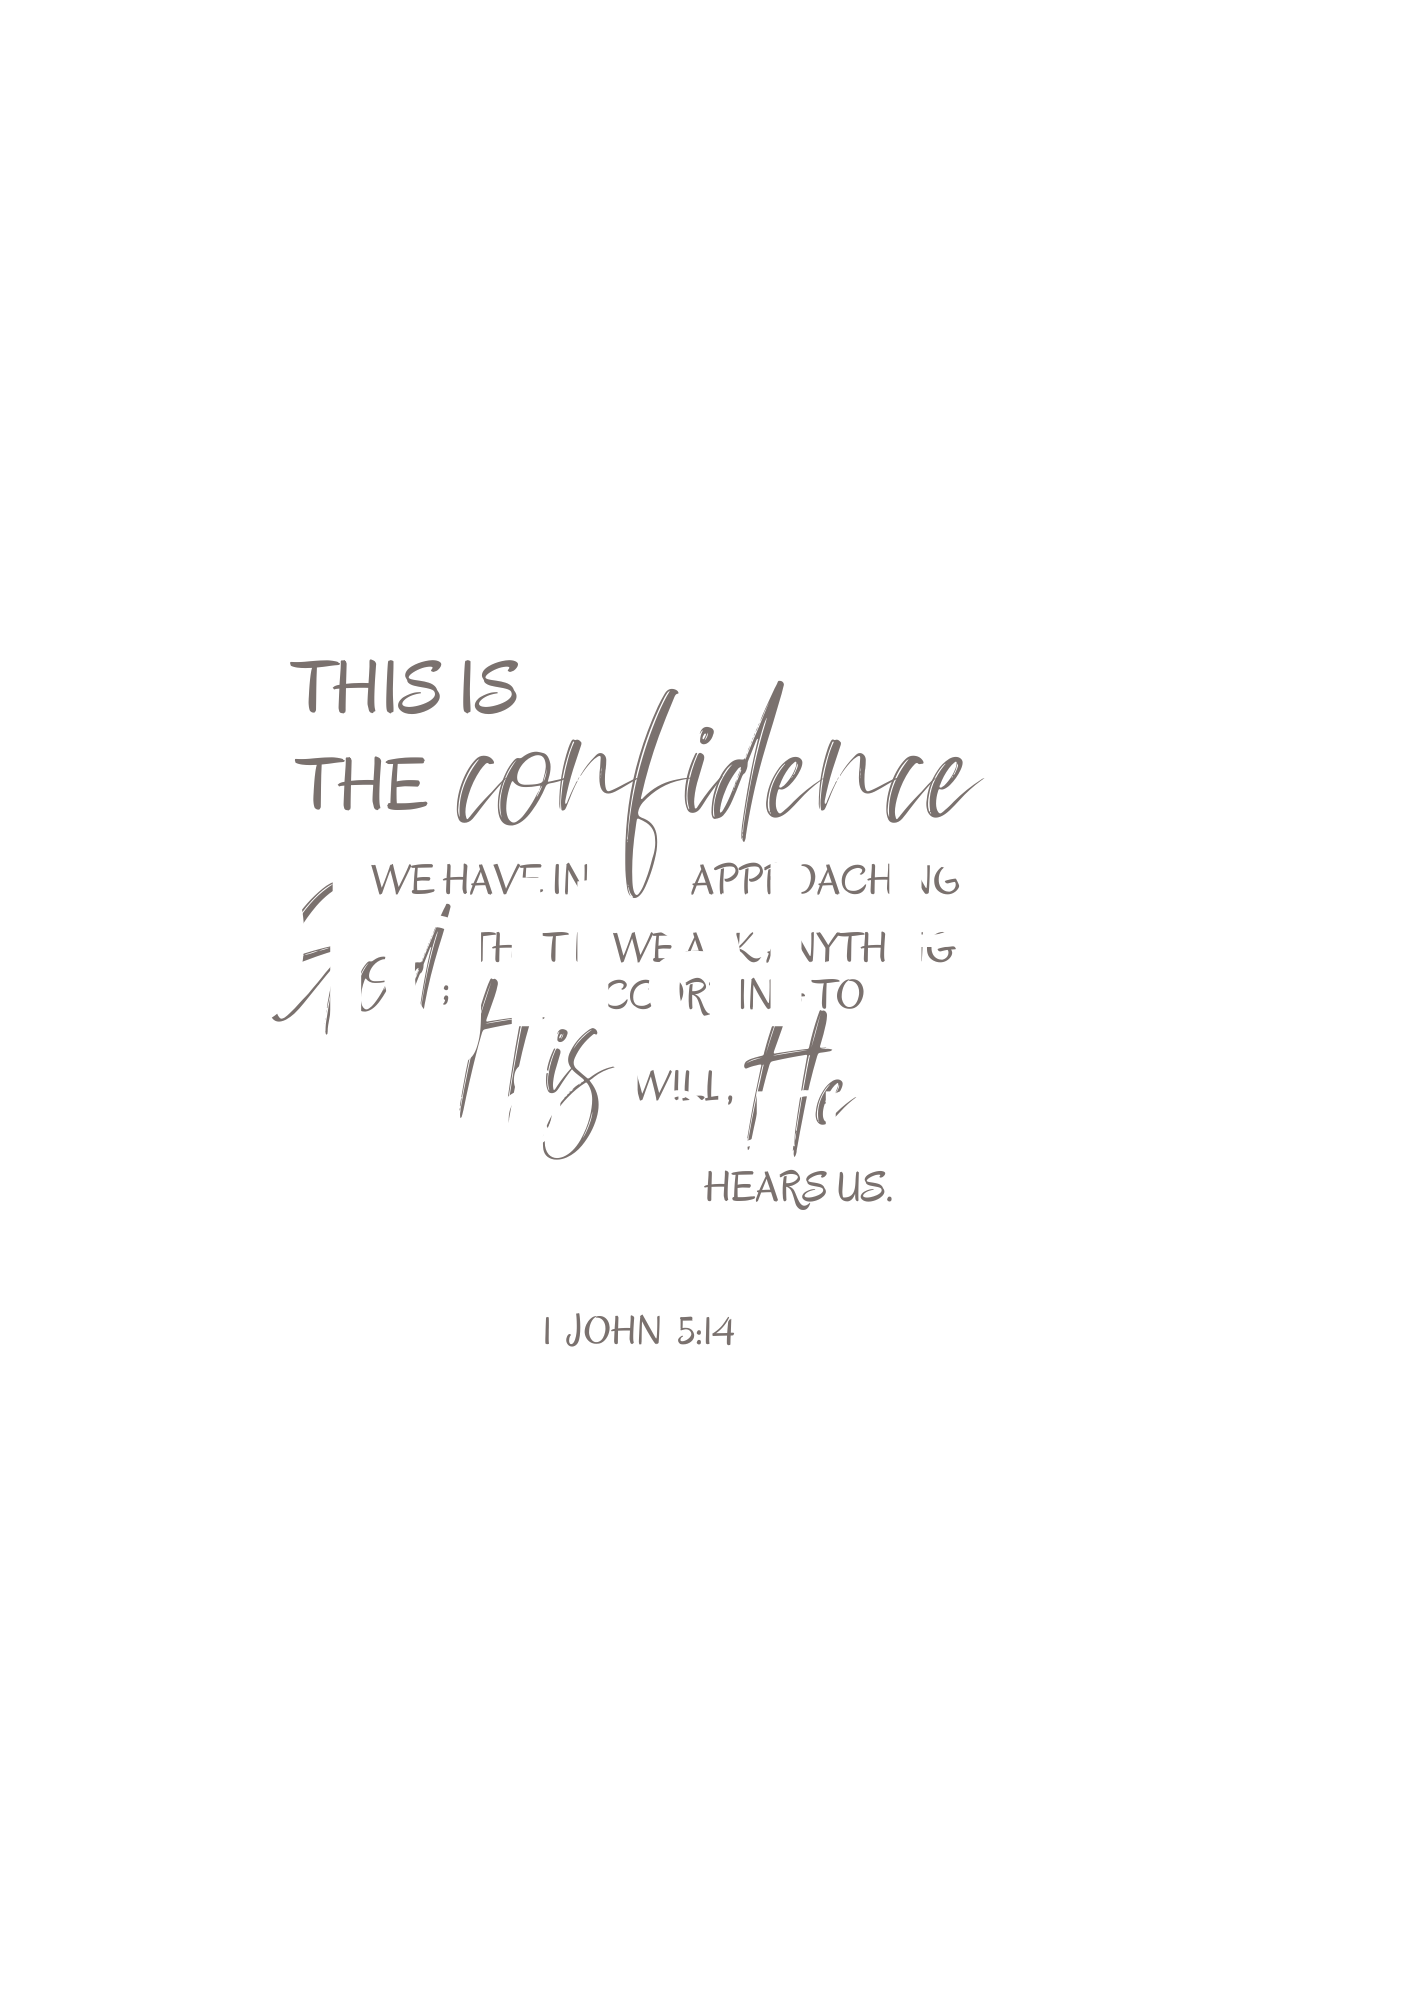 THIS IS
THE confidence
WE HAVE IN APPROACHING
God; WE ANYTHING
TO
His WILL, He
HEARS US.
1 JOHN 5:14